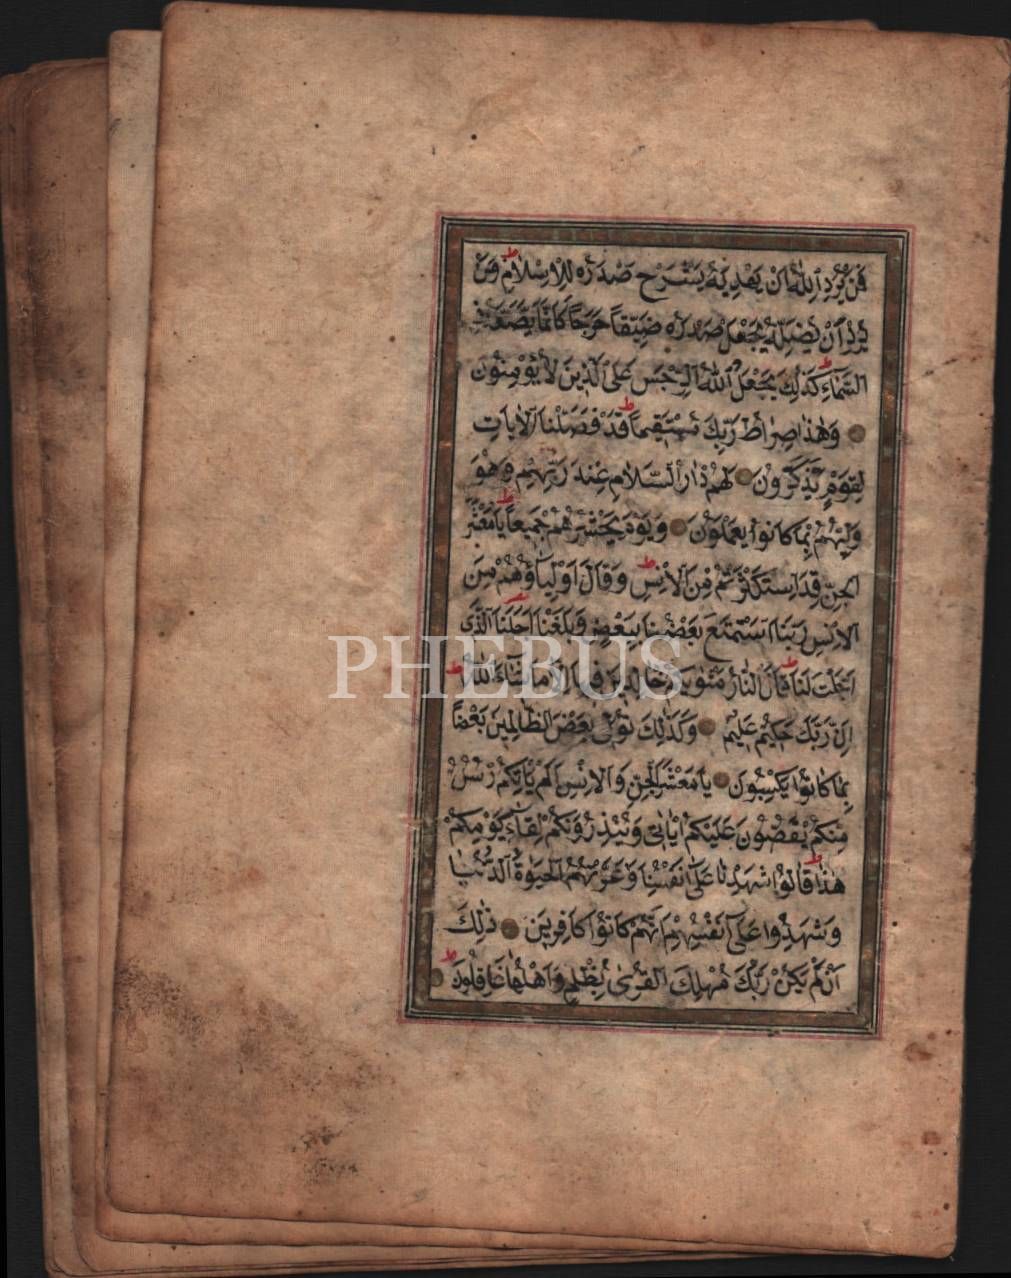 فَمَنْ يُرِدِ اللّٰهُ اَنْ يَهْدِيَهُ يَشْرَحْ صَدْرَهُ لِلْاِسْلَامِ ط وَمَنْ
يُرِدْ اَنْ يُضِلَّهُ يَجْعَلْ صَدْرَهُ ضَيِّقاً حَرَجاً كَاَنَّمَا يَصَّعَّدُ فِي
السَّمَاءِ ط كَذٰلِكَ يَجْعَلُ اللّٰهُ الرِّجْسَ عَلَى الَّذِينَ لَا يُؤْمِنُونَ
وَهٰذَا صِرَاطُ رَبِّكَ مُسْتَقِيماً ط قَدْ فَصَّلْنَا الْاٰيَاتِ
لِقَوْمٍ يَذَّكَّرُونَ لَهُمْ دَارُ السَّلَامِ عِنْدَ رَبِّهِمْ وَهُوَ
وَلِيُّهُمْ بِمَا كَانُوا يَعْمَلُونَ وَيَوْمَ يَحْشُرُهُمْ جَمِيعاً ط يَا مَعْشَرَ
الْجِنِّ قَدِ اسْتَكْثَرْتُمْ مِنَ الْاِنْسِ ط وَقَالَ اَوْلِيَاؤُهُمْ مِنَ
الْاِنْسِ رَبَّنَا اسْتَمْتَعَ بَعْضُنَا بِبَعْضٍ وَبَلَغْنَا اَجَلَنَا الَّذِي
اَجَّلْتَ لَنَا ط قَالَ النَّارُ مَثْوٰيكُمْ خَالِدِينَ فِيهَا اِلَّا مَا شَاءَ اللّٰهُ ط
اِنَّ رَبَّكَ حَكِيمٌ عَلِيمٌ وَكَذٰلِكَ نُوَلِّي بَعْضَ الظَّالِمِينَ بَعْضاً
بِمَا كَانُوا يَكْسِبُونَ يَا مَعْشَرَ الْجِنِّ وَالْاِنْسِ اَلَمْ يَأْتِكُمْ رُسُلٌ
مِنْكُمْ يَقُصُّونَ عَلَيْكُمْ اٰيَاتِي وَيُنْذِرُونَكُمْ لِقَاءَ يَوْمِكُمْ
هٰذَا ط قَالُوا شَهِدْنَا عَلٰى اَنْفُسِنَا وَغَرَّتْهُمُ الْحَيٰوةُ الدُّنْيَا
وَشَهِدُوا عَلٰى اَنْفُسِهِمْ اَنَّهُمْ كَانُوا كَافِرِينَ ذٰلِكَ
اَنْ لَمْ يَكُنْ رَبُّكَ مُهْلِكَ الْقُرٰى بِظُلْمٍ وَاَهْلُهَا غَافِلُونَ ط
PHEBUS